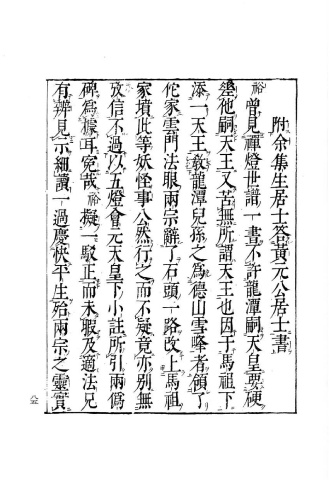 附余集生居士答黃元公居士書
裕曾見禪燈世譜一書不許龍潭嗣天皇要硬
差他嗣天王又苦無所謂天王也因于馬祖下
添一天王教龍潭兒孫之為德山雪峰者領了
佗家雲門法眼兩宗辭了石頭一路改上馬祖
家墳此等妖怪事公然行之而不疑竟亦別無
攷信不過以五燈會元天皇下小註所引兩偽
碑為據耳冤哉裕擬一駁正而未暇及適法兄
有辨見示細讀一過慶快平生殆兩宗之靈實
八五